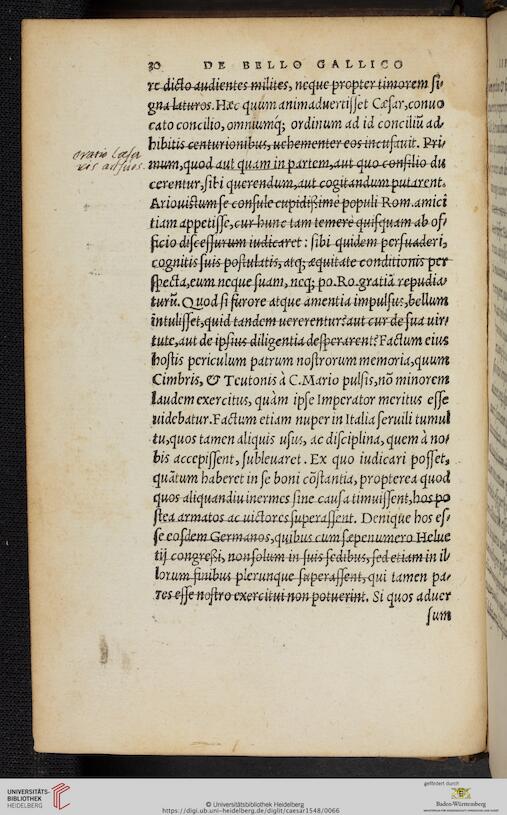 30 DE BELLO GALLICO
re dicto audientes milites, neque propter timorem si⸗
gna laturos. Hæc quum animadvertisset Cæsar, conuo
cato concilio, omniumq́; ordinum ad id conciliũ ad⸗
hibitis centurionibus, uehementer eos incusauit. Pri⸗
oratio Cæsa
ris ad suos.
mum, quod aut quam in partem, aut quo consilio du
cerentur, sibi querendum, aut cogitandum putarent.
Ariouistum se consule cupidißimè populi Rom. amici
tiam appetisse, cur hunc tam temerè quisquam ab of⸗
ficio discessurum iudicaret: sibi quidem persuaderi,
cognitis suis postulatis, atq; æquitate conditionis per
specta, eum neque suam, neq; po. Ro. gratiã repudia⸗
turũ. Quod si furore atque amentia impulsus, bellum
intulisset, quid tandem uererentur? aut cur de sua uir⸗
tute, aut de ipsius diligentia desperarent? Factum eius
hostis periculum patrum nostrorum memoria, quum
Cimbris, & Teutonis à C. Mario pulsis, nõ minorem
laudem exercitus, quàm ipse Imperator meritus esse
uidebatur. Factum etiam nuper in Italia seruili tumul
tu, quos tamen aliquis usus, ac disciplina, quem à no⸗
bis accepissent, subleuaret. Ex quo iudicari posset,
quãtum haberet in se boni cõstantia, propterea quod
quos aliquandiu inermes sine causa timuissent, hos po
stea armatos ac uictores superassent. Denique hos es⸗
se eosdem Germanos, quibus cum sæpenumero Helue
tij congreßi, non solum in suis sedibus, sed etiam in il⸗
lorum finibus plerunque superassent, qui tamen pa⸗
res esse nostro exercitui non potuerint. Si quos aduer
sum
UNIVERSITÄTS-
BIBLIOTHEK
HEIDELBERG
© Universitätsbibliothek Heidelberg
https://digi.ub.uni-heidelberg.de/diglit/caesar1548/0066
gefördert durch
Baden-Württemberg